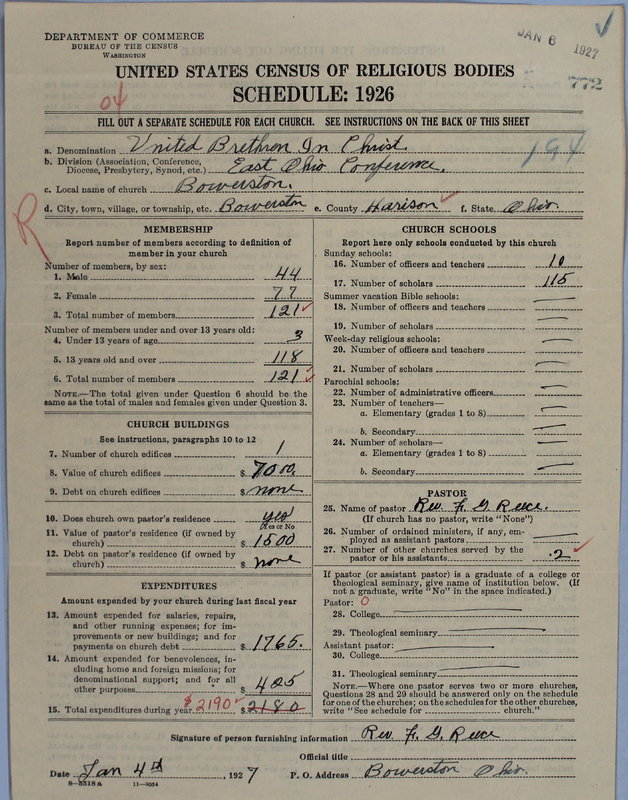 DEPARTMENT OF COMMERCE
BUREAU OF THE CENSUS
WASHINGTON
JAN 6 1927
UNITED STATES CENSUS OF RELIGIOUS BODIES
772
SCHEDULE: 1926
04
FILL OUT A SEPARATE SCHEDULE FOR EACH CHURCH. SEE INSTRUCTIONS ON THE BACK OF THIS SHEET
a. Denomination United Brethren In Christ.
194
b. Division (Association, Conference, Diocese, Presbytery, Synod, etc.) East Ohio Conference.
c. Local name of church Bowerston.
d. City, town, village, or township, etc. Bowerston e. County Harison f. State Ohio.
R
MEMBERSHIP
Report number of members according to definition of
member in your church
Number of members, by sex:
1. Male 44
2. Female 77
3. Total number of members 121
Number of members under and over 13 years old:
4. Under 13 years of age 3
5. 13 years old and over 118
6. Total number of members 121
NOTE.—The total given under Question 6 should be
same as the total of males and females given under Question 3.
CHURCH BUILDINGS
See instructions, paragraphs 10 to 12
7. Number of church edifices 1
8. Value of church edifices $ 7000.
9. Debt on church edifices $ none
10. Does church own pastor's residence yes
(Yes or No)
11. Value of pastor's residence (if owned by
church) $ 1500
12. Debt on pastor's residence (if owned by
church) $ none
EXPENDITURES
Amount expended by your church during last fiscal year
13. Amount expended for salaries, repairs,
and other running expenses; for im-
provements or new buildings; and for
payments on church debt $ 1765.
14. Amount expended for benevolences, in-
cluding home and foreign missions; for
denominational support; and for all
other purposes $ 425
15. Total expenditures during year $2190 $ 2180
CHURCH SCHOOLS
Report here only schools conducted by this church
Sunday schools:
16. Number of officers and teachers 10
17. Number of scholars 115
Summer vacation Bible schools:
18. Number of officers and teachers
19. Number of scholars
Week-day religious schools:
20. Number of officers and teachers
21. Number of scholars
Parochial schools:
22. Number of administrative officers
23. Number of teachers—
a. Elementary (grades 1 to 8)
b. Secondary
24. Number of scholars—
a. Elementary (grades 1 to 8)
b. Secondary
PASTOR
25. Name of pastor Rev. F. G. Reece.
(If church has no pastor, write "None")
26. Number of ordained ministers, if any, em-
ployed as assistant pastors
27. Number of other churches served by the
pastor or his assistants 2
If pastor (or assistant pastor) is a graduate of a college or
theological seminary, give name of institution below. (If
not a graduate, write "No" in the space indicated.)
Pastor: 0
28. College
29. Theological seminary
Assistant pastor:
30. College
31. Theological seminary
NOTE.—Where one pastor serves two or more churches,
Questions 28 and 29 should be answered only on the schedule
for one of the churches; on the schedules for the other churches,
write "See schedule for church."
Signature of person furnishing information Rev. F. G. Reece
Official title
Date Jan 4th, 1927 P. O. Address Bowerston Ohio.
8—5318a 11—9034